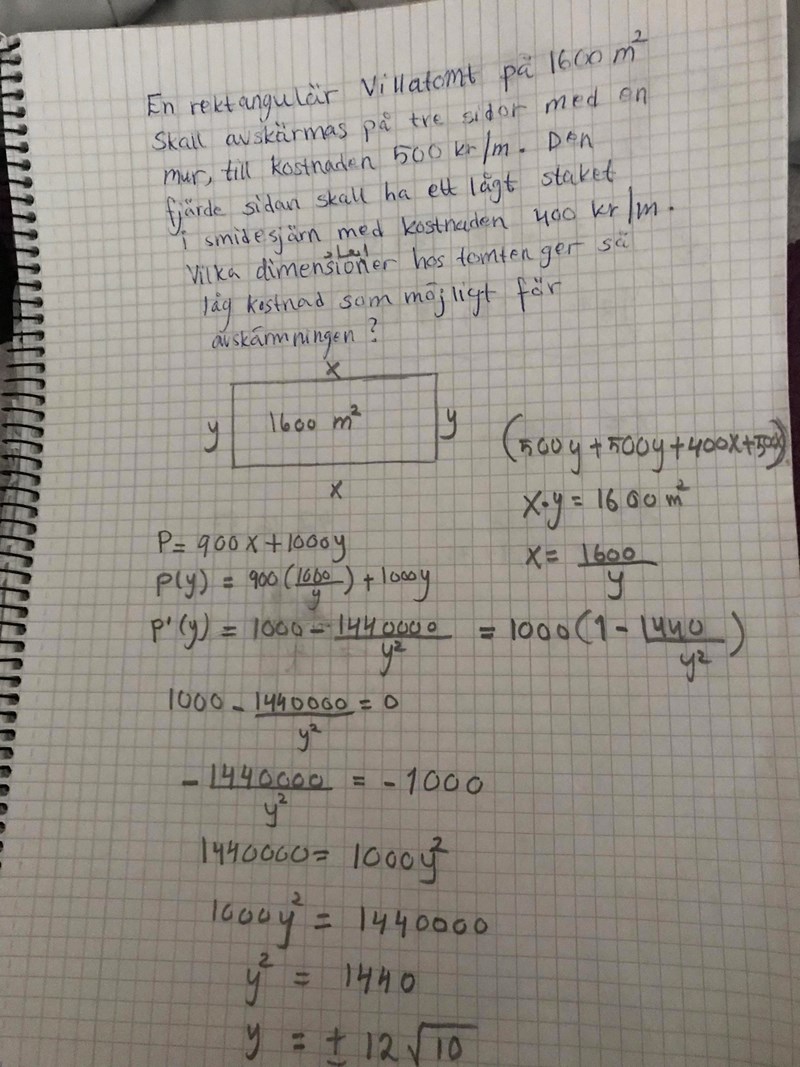 En rektangulär Villatomt på 1600 m²
Skall avskärmas på tre sidor med en
mur, till kostnaden 500 kr/m. Den
fjärde sidan skall ha ett lågt staket
i smidesjärn med kostnaden 400 kr/m.
ابعاد
Vilka dimensioner hos tomten ger så
låg kostnad som möjligt för
avskärmningen?
x
y 1600 m² y
x
(500y+500y+400x+500x)
x·y = 1600 m²
x = 1600/y
P = 900x+1000y
P(y) = 900(1600/y)+1000y
P'(y) = 1000 - 1440000/y² = 1000(1 - 1440/y²)
1000 - 1440000/y² = 0
- 1440000/y² = -1000
1440000 = 1000y²
1000y² = 1440000
y² = 1440
y = ± 12√10